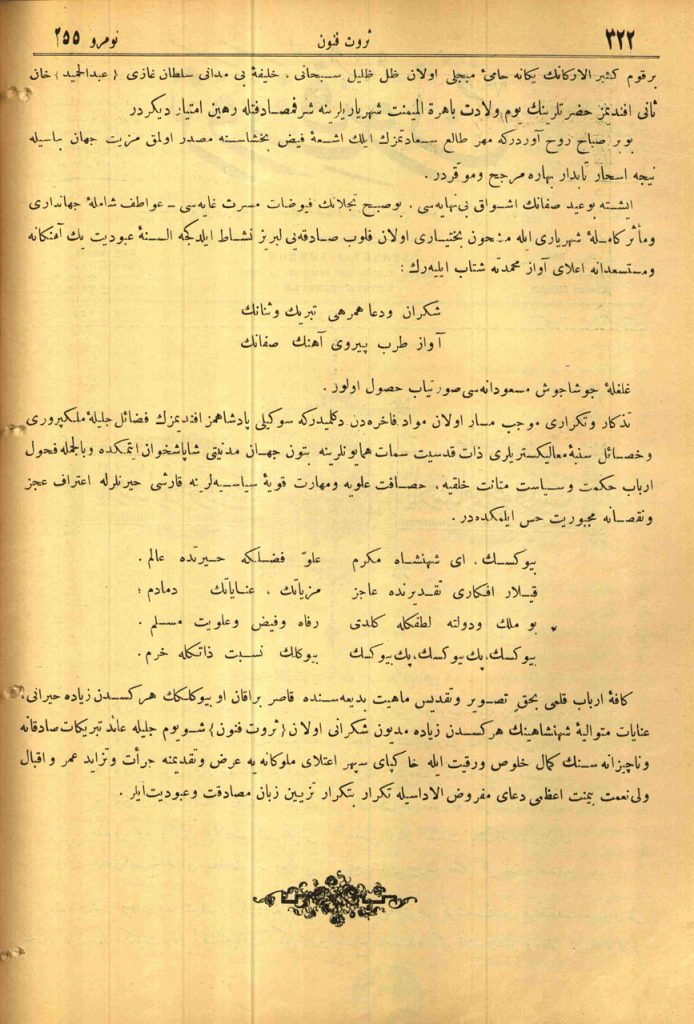 ٣٢٢ ثروت فنون نومرو ٢٥٥
بر قوم كثير الاركانك يكانه حامئ مبجلى اولان ظل ظليل سبحانى ، خليفۀ بى مدانى سلطان غازى { عبدالحميد } خان
ثانى افندیمز حضرتلرينك يوم ولادت باهرة الميمنت شهرياريلرينه شرفمصادفتله رهين امتياز ديكردر
بو بر صباح روح آوردركه مهر طالع سعادتمزك ايلك اشعۀ فيض بخشاسنه مصدر اولمق مزيت جهان بهاسيله
نيجه اسحار تابدار بهاره مرجح وموقردر .
ايشته بو عيد صفانك اشواق بى نهايه‌سى . بو صبيح تجلانك فيوضات مسرت غايه‌سى ـ عواطف شاملۀ جهاندارى
ومآثر كاملۀ شهريارى ايله مشحون بختيارى اولان قلوب صادقه‌يى لبريز نشاط ايلدكجه السنۀ عبوديت يك آهنكانه
ومستسعدانه اعلاى آواز محمدته شتاب ايليه‌رك :
شكران ودعا همرهى تبريك وثنانك
آواز طرب پيروى آهنك صفانك
غلغلۀ جوشاجوش مسعودانه‌سى صورتياب حصول اولور .
تذكار وتكرارى موجب مسار اولان مواد فاخره‌دن دكلميدركه سوكيلى پادشاهمز افندیمزك فضائل جليلۀ ملكپرورى
وخصائل سنيۀ معاليكسترى‌لرى ذات قدسيت سمات همايونلرينه بتون جهان مدنيتى شاپاشخوان ايتمكده وبالجمله فحول
ارباب حكمت وسياست متانت خلقيه ، حصافت علويه ومهارت قويۀ سياسيه‌لرينه قارشى حيرتلرله اعتراف عجز
ونقصانه مجبوريت حس ايلمكده‌در .
بيوكسك . اى شهنشاه مكرم علوّ فضلكه حيرتده عالم .
قيلار افكارى تقديرنده عاجز مزياتك ، عناياتك دمادم ؛
بو ملك ودولته لطفكله كلدى رفاه وفيض وعلويت مسلم .
بيوكسك، پك بيوكسك، پك بيوكسك بيوكلك نسبت ذاتكله خرم .
كافۀ ارباب قلمى بحقٍ تصوير وتقديس ماهيت بديعه‌سنده قاصر براقان او بيوكلكك هركسدن زياده حيرانى،
عنايات متواليۀ شهنشاهينك هركسدن زياده مديون شكرانى اولان { ثروت فنون } شو يوم جليله عائد تبريكات صادقانه
وناچيزانه سنك كمال خلوص ورقيت ايله خاكپاى سپهر اعتلاى ملوكانه‌يه عرض وتقديمنه جرأت وتزايد عمر واقبال
ولى نعمت بيمنت اعظمى دعاى مفروض الاداسيله تكرار بتكرار تزيين زبان مصادقت وعبوديت ايلر .